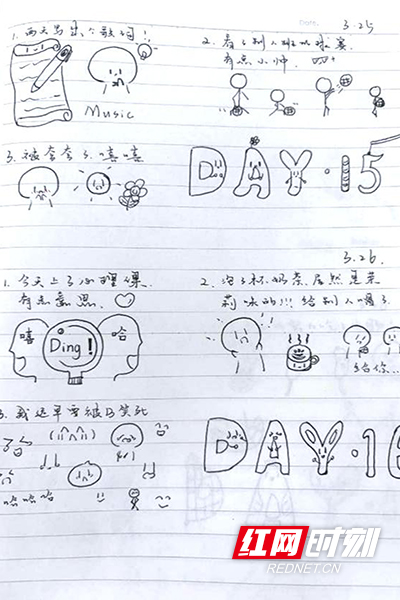 3.25
1. 两天写出个歌词!
Music
2. 看了别人班的球赛
有点小帅.
3. 被夸夸了.嘻嘻
DAY·15
3.26.
1. 今天上了心理课.
有点意思.
嘻
Ding!
哈
2. 泡了杯奶茶.居然是茉
莉冰的!!! 给别人喝了
给你...
3. 我迟早要被自己笑死
哈哈哈哈
DAY·16
红网时刻
REDNET.CN